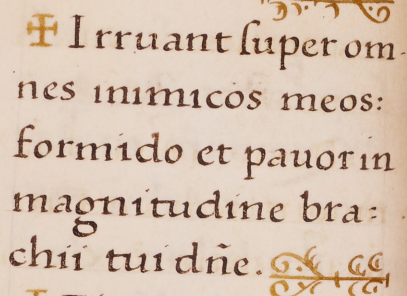 ✠ Irruant ſuper om-
nes inimicos meos:
formido et pauor in
magnitudine bra=
chii tui dñe.